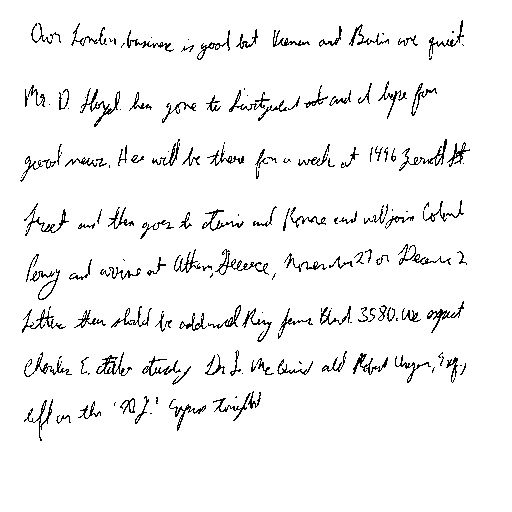 Our London business is good but Vienna and Berlin are quiet.
Mr. D. Lloyd has gone to and I hope for
good news. He will be there for a week at 1496 Zermott St.
Street and then goes to Turin and Rome and will join Colonel
Perry and arrive at Athens, Greece, November 27 or December 2
Letters there should be addressed King James Blvd 3580. We expect
Charles E. Tuesday Dr. L. McQuaid and Robert Unger, Esq.,
left on the 'X.Y.' Express tonight